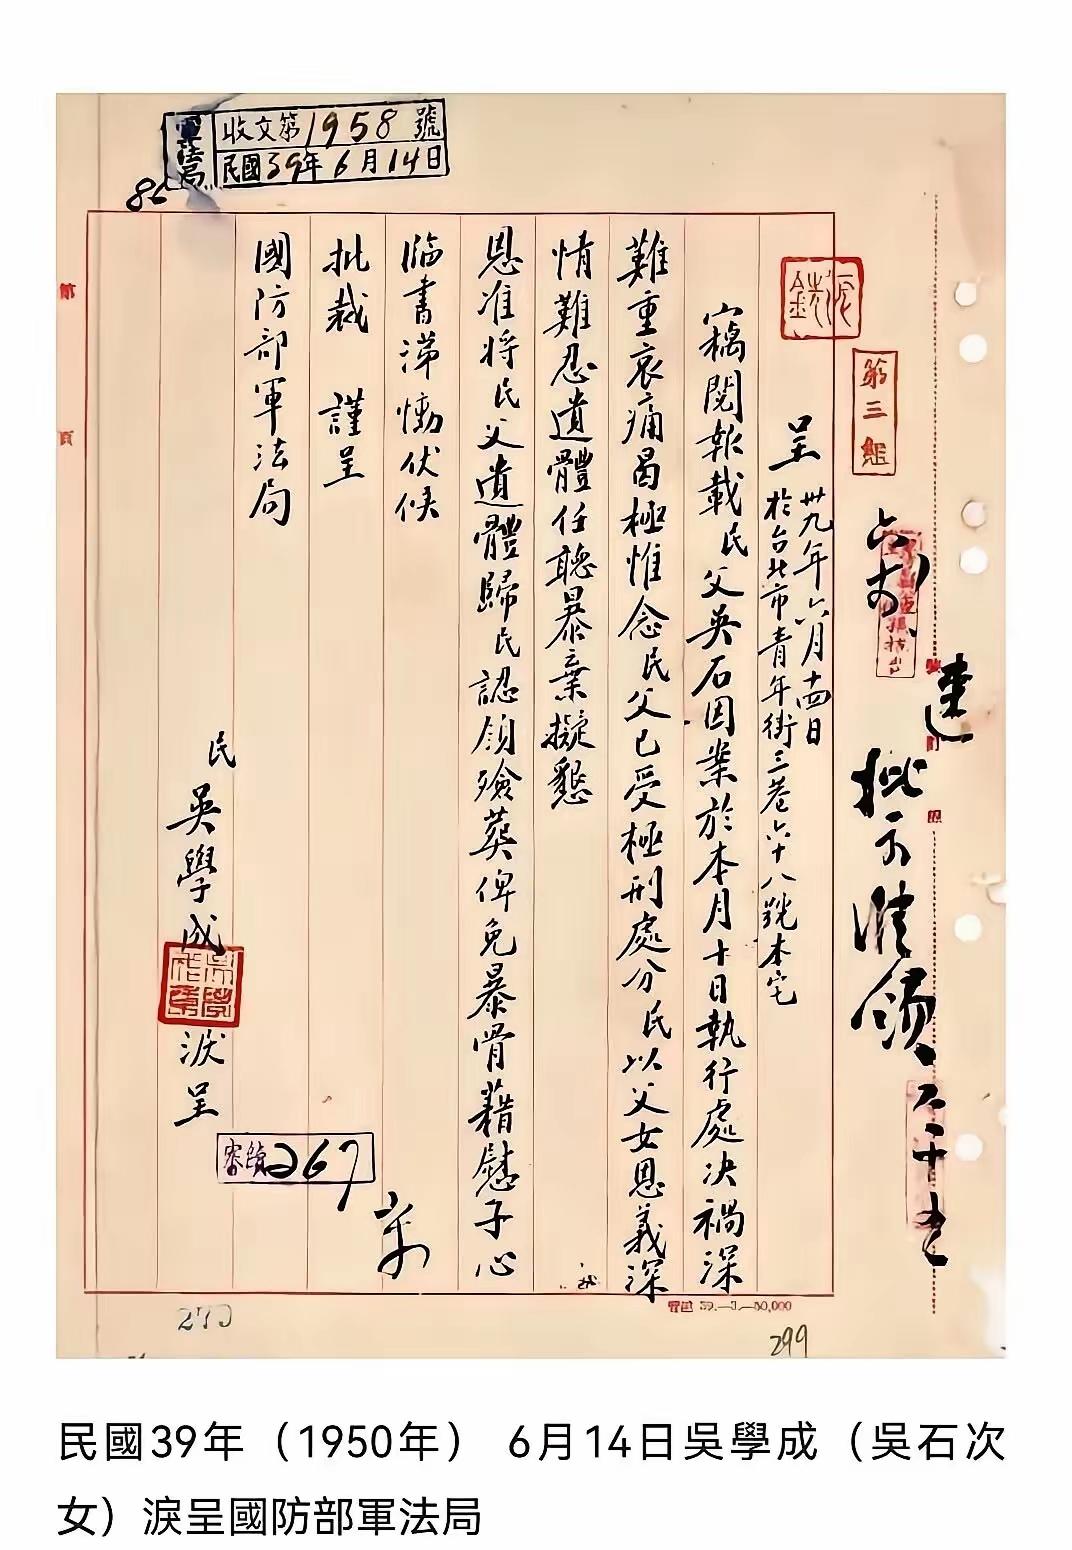 軍法局
收文第1958號
民國39年6月14日
第三組
呈
卅九年六月十四日
於台北市青年街三巷六十八號本宅
竊閱報載民父吳石因案於本月十日執行處決禍深
難重哀痛曷極惟念民父已受極刑處分民以父女恩義深
情難忍遺體任聽暴棄擬懇
恩准將民父遺體歸民認領殮葬俾免暴骨藉慰子心
臨書涕慟伏候
批裁 謹呈
國防部軍法局
民 吳學成 淚呈
批示准領
六、十五
審續267
39.—3.—50,000
299
第
頁
民國39年（1950年） 6月14日吳學成（吳石次
女）淚呈國防部軍法局